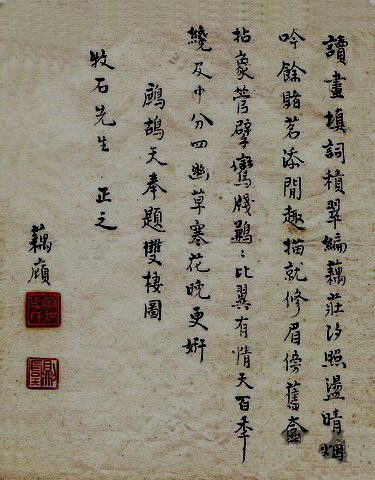 讀畫填詞積翠編藕莊汐照盪晴烟
吟餘賭茗添閒趣描就修眉傍舊奩
拈象管擘鸞牋鶼〻比翼有情天百年
纔及中分四幽草寒花晚更妍
鷓鴣天奉題雙棲圖
牧石先生 正之
藕廎